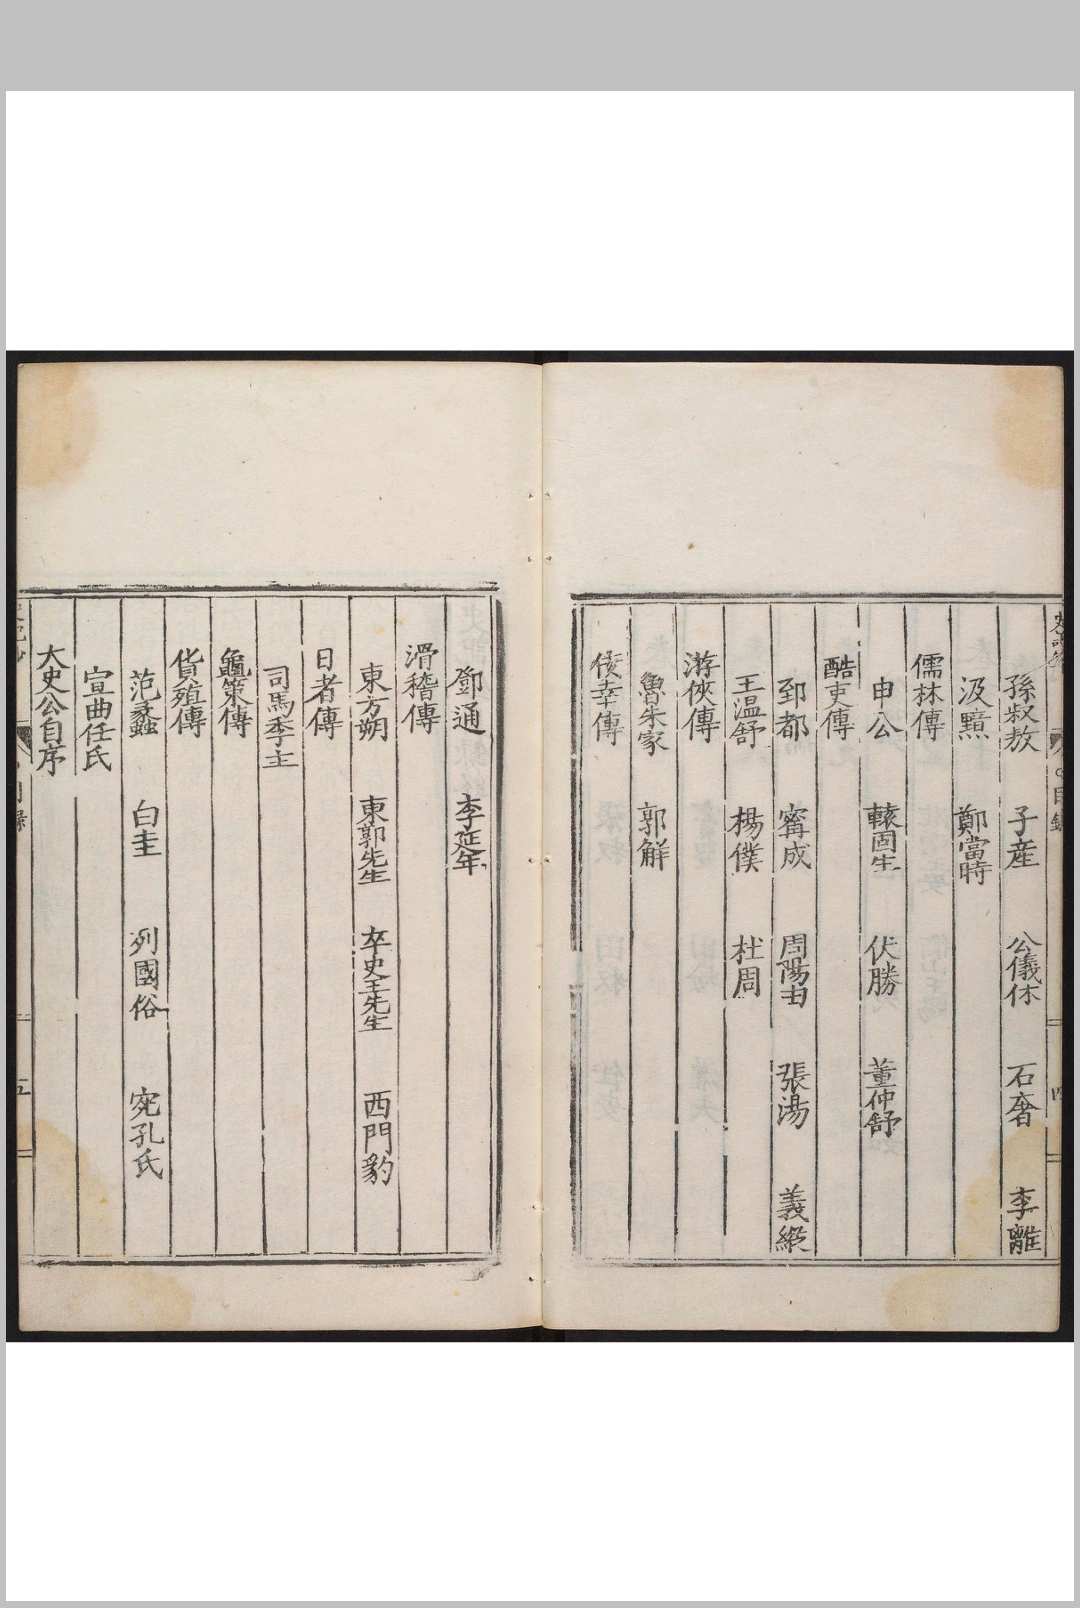 孫叔敖　子產　公儀休　石奢　李離
汲黯　鄭當時
儒林傳
申公　轅固生　伏勝　董仲舒
酷吏傳
郅都　甯成　周陽由　張湯　義縱
王溫舒　楊僕　杜周
游俠傳
魯朱家　郭解
佞幸傳
鄧通　李延年
滑稽傳
東方朔　東郭先生　卒史王先生　西門豹
日者傳
司馬季主
龜策傳
貨殖傳
范蠡　白圭　列國俗　宛孔氏
宣曲任氏
大史公自序